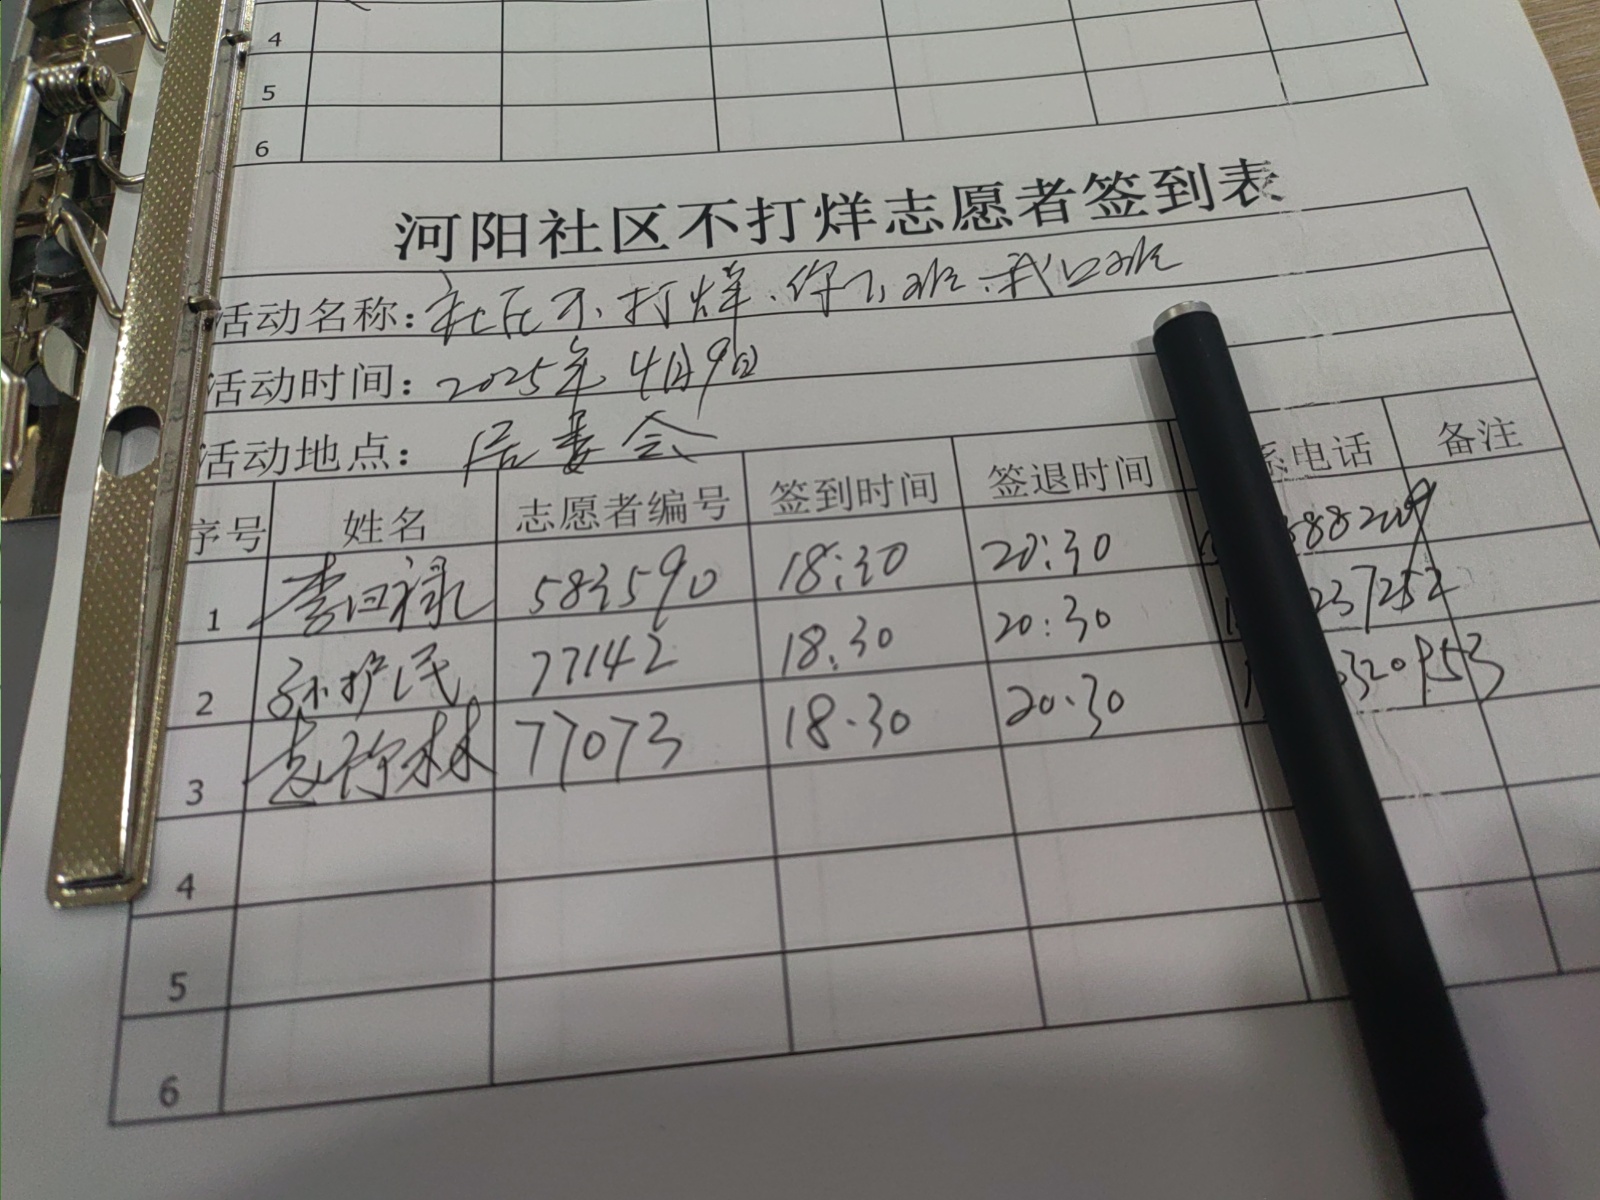 4
5
6
河阳社区不打烊志愿者签到表
活动名称：社区不打烊、你下班、我上班
活动时间：2025年4月9日
活动地点：居委会
序号 姓名 志愿者编号 签到时间 签退时间 系电话 备注
1 李 禄 583590 18:30 20:30 888209
2 孙护民 77142 18:30 20:30 237252
3 林 77073 18:30 20:30 320953
4
5
6